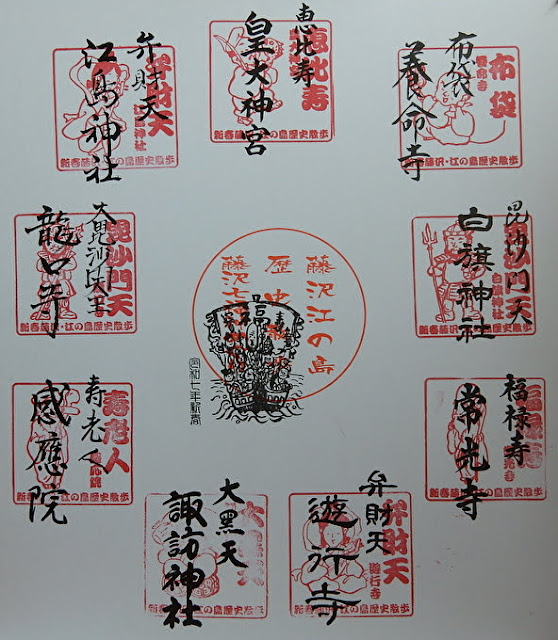 恵比寿
皇大神宮
恵比寿
新春藤沢・江の島歴史散歩
布袋
養命寺
布袋
養命寺
新春藤沢・江の島歴史散歩
毘沙門天
白旗神社
毘沙門天
白旗神社
新春藤沢・江の島歴史散歩
福禄寿
常光寺
新春藤沢・江の島歴史散歩
弁財天
遊行寺
弁財天
遊行寺
新春藤沢・江の島歴史散歩
大黒天
諏訪神社
新春藤沢・江の島歴史散歩
寿老人
感應院
寿老人
新春藤沢・江の島歴史散歩
龍口寺
毘沙門天
新春藤沢・江の島歴史散歩
弁財天
江島神社
弁財天
江島神社
新春藤沢・江の島歴史散歩
藤沢江の島
歴史
藤沢七
福
令和七年新春